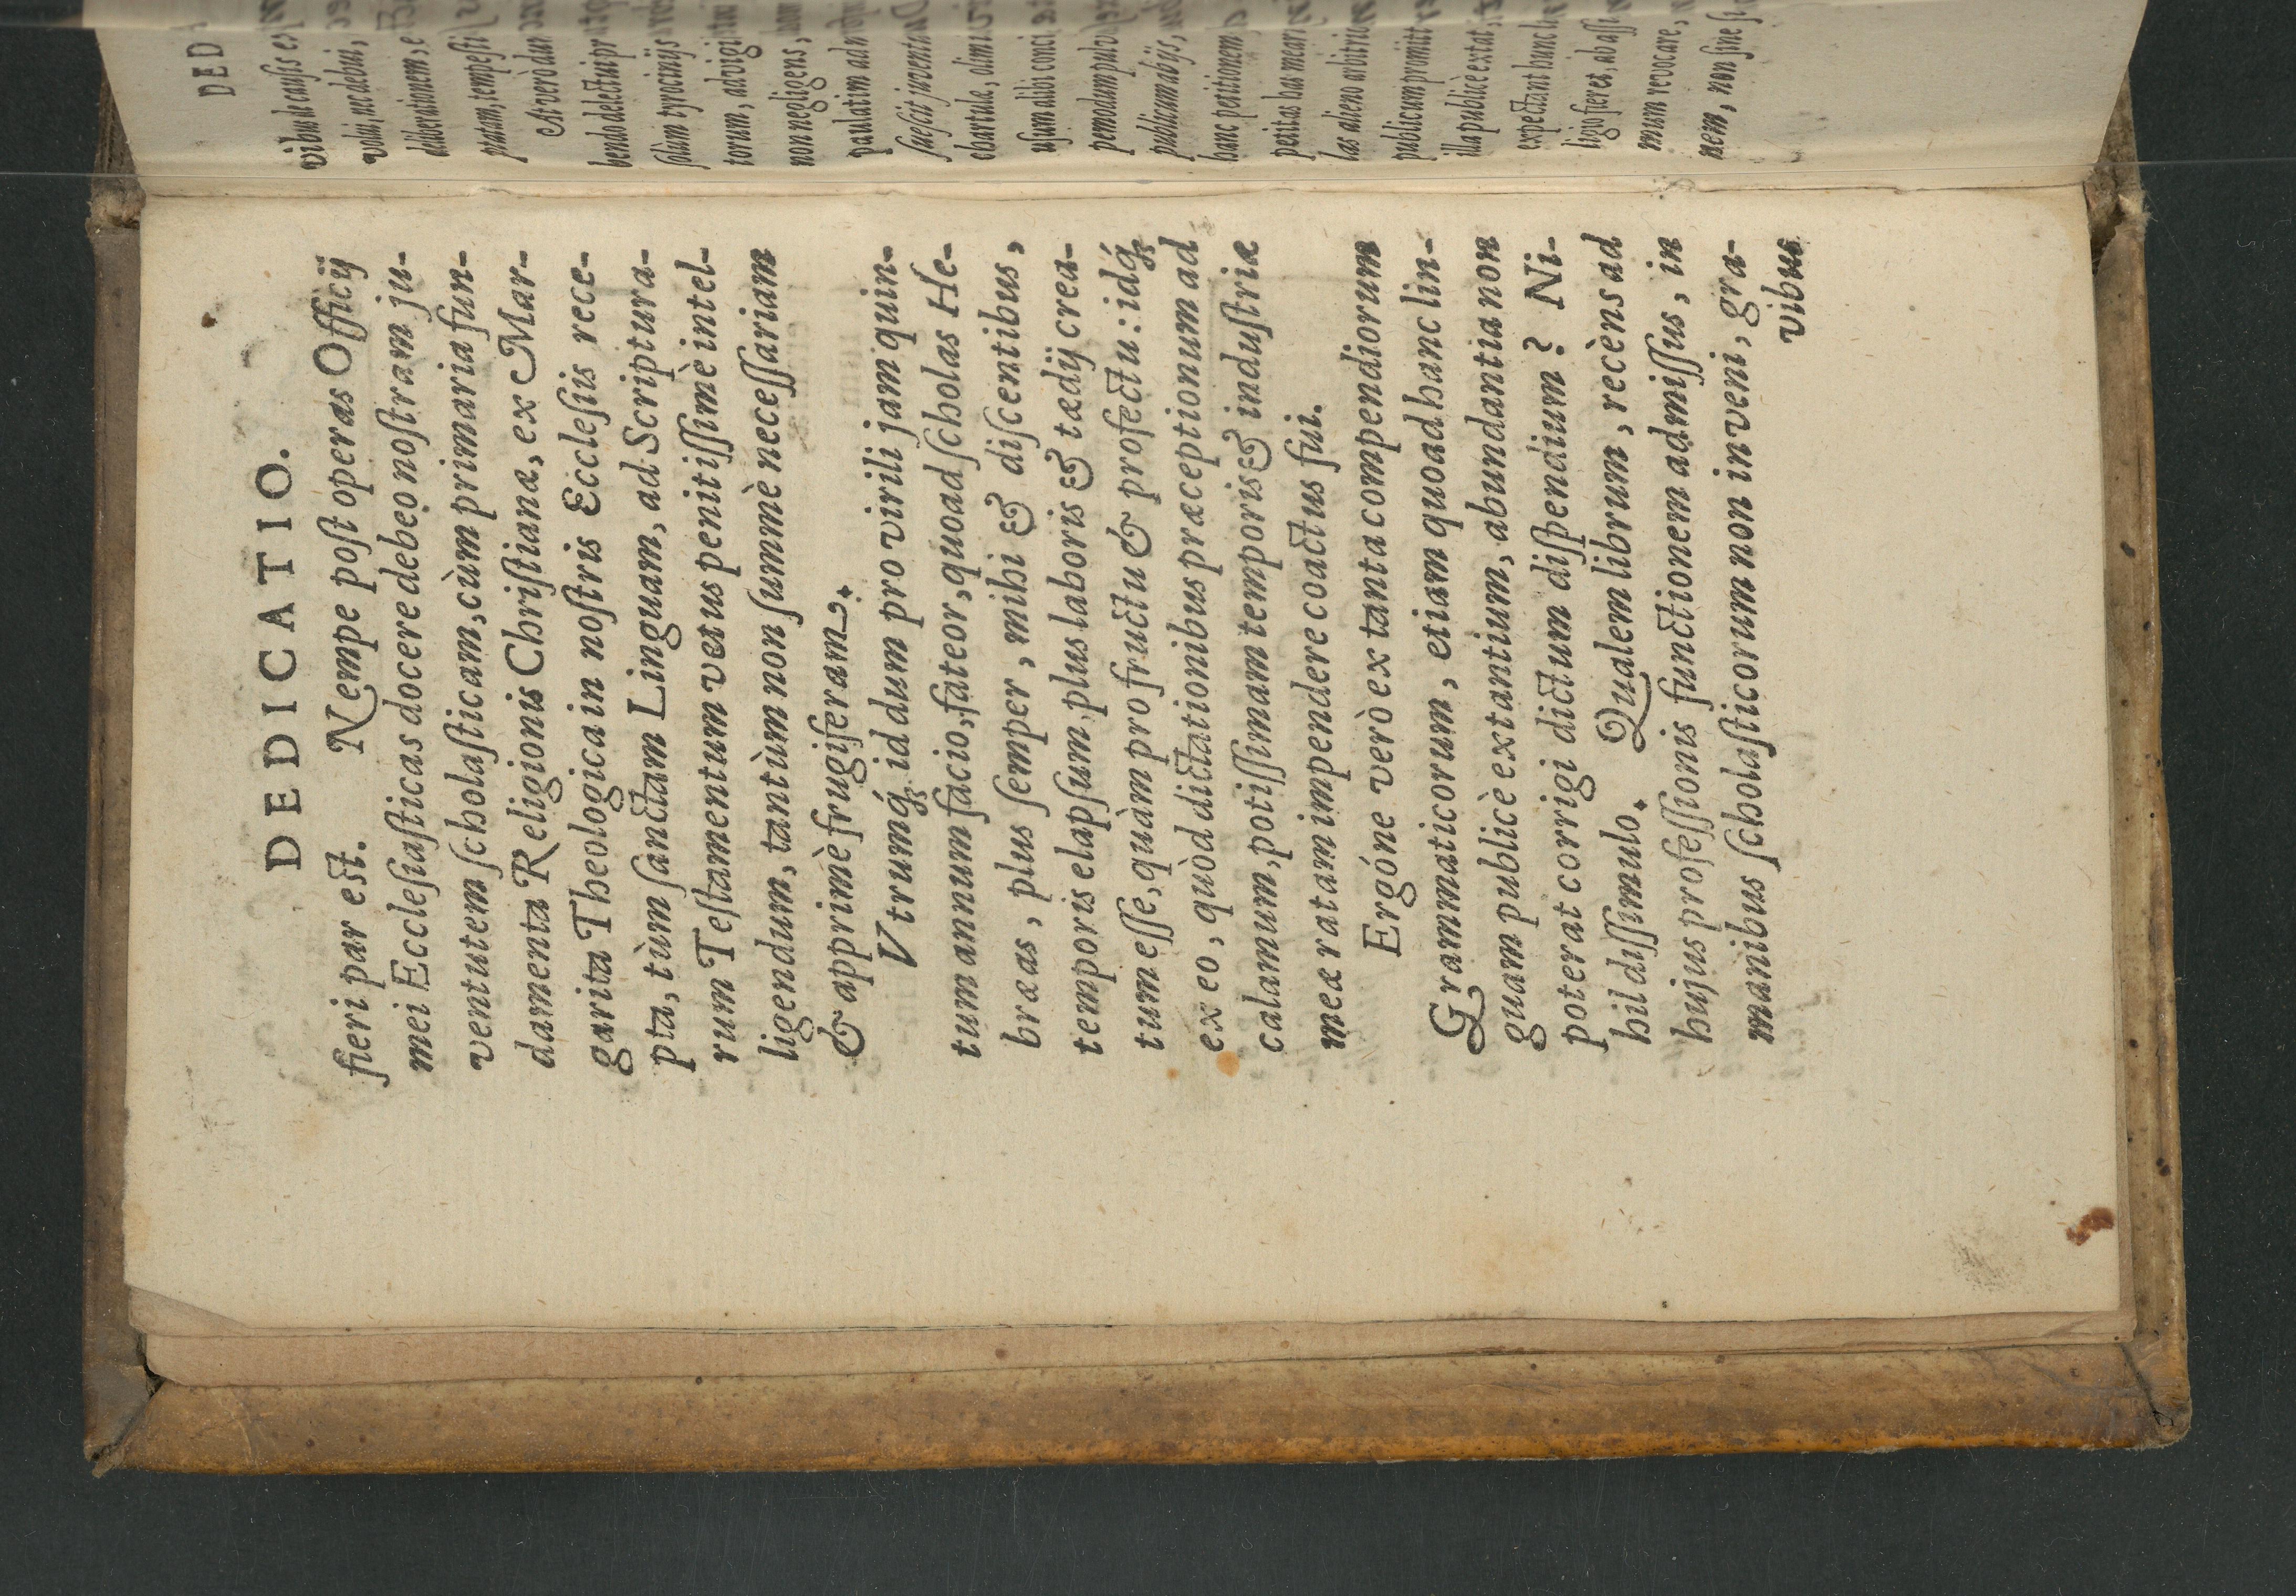 DEDICATIO.
fieri par est. Nempe poſt operas Officij
mei Eccleſiaſticas docere debeo noſtram ju-
ventutem ſcholaſticam, cùm primaria fun-
damenta Religionis Chriſtianæ, ex Mar-
garita Theologica in noſtris Eccleſiis rece-
pta, tùm ſanctam Linguam, ad Scriptura-
rum Teſtamentum vetus penitiſſimè intel-
ligendum, tantùm non ſummè neceſſariam
& apprimè frugiferam.
Vtrumq́; id dum pro virili jam quin-
tum annum facio, fateor, quoad ſcholas He-
bræas, plus ſemper, mihi & diſcentibus,
temporis elapſum, plus laboris & tædij crea-
tum eſſe, quàm pro fructu & profectu: idq́;
ex eo, quòd dictationibus præceptionum ad
calamum, potiſſimam temporis & induſtriæ
meæ ratam impendere coactus fui.
Ergóne verò ex tanta compendiorum
Grammaticorum, etiam quoad hanc lin-
guam publicè extantium, abundantia non
poterat corrigi dictum diſpendium? Ni-
hil diſſimulo. Qualem librum, recèns ad
hujus profeſſionis functionem admiſſus, in
manibus ſcholaſticorum non inveni, gra-
vibus
DED
vibus de cauſis
volui, nec debui,
deliberationem,
ptatam, tempeſti
At verò dum
bendo delectui pr
ſolùm tyrociniis
torum, ad vigi
non negligens,
paulatim ad
ſueſcit juventa
chartulæ, olim
uſum alibi conci
publicum abijs,
hanc petitionem
petitas has mear
las alieno arbitrio
publicum promitt
illa publicè extat,
expectant hunc
ligio fieret, ab aſſi
mum revocare,
nem, non ſine